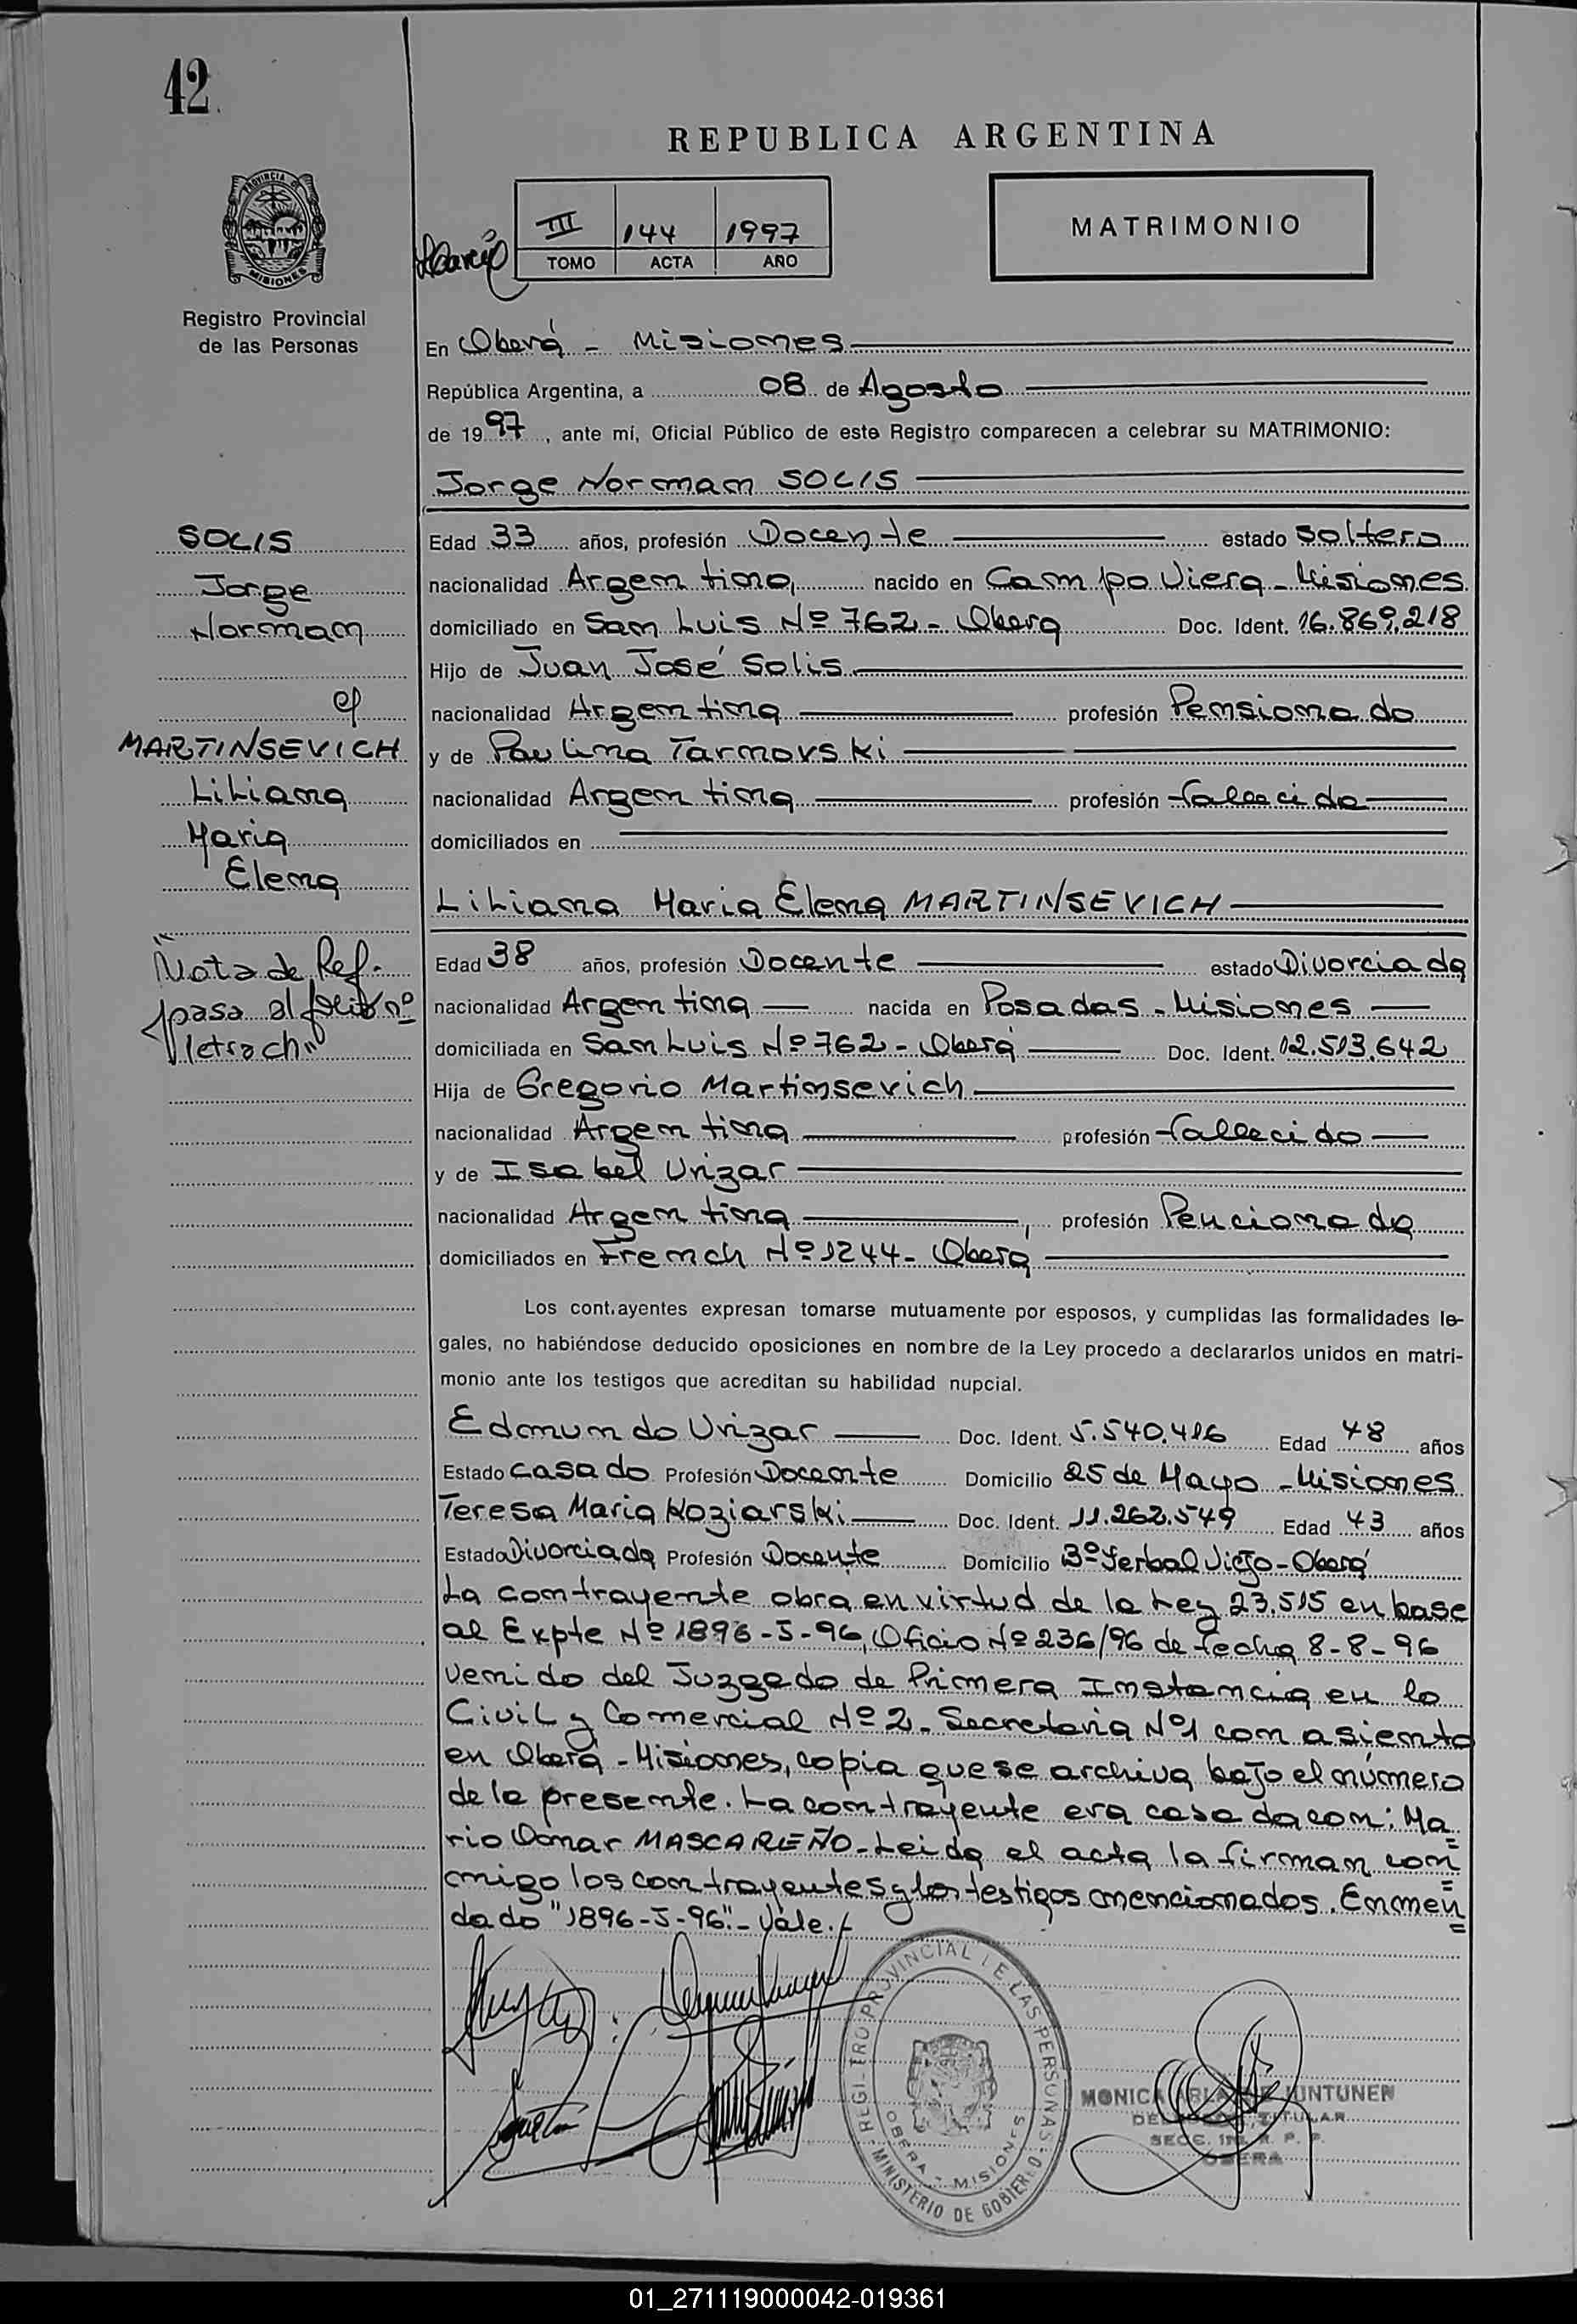 42
REPUBLICA ARGENTINA
PROVINCIA DE
MISIONES
Registro Provincial
de las Personas
III 144 1997
TOMO ACTA AÑO
MATRIMONIO
En Oberá - Misiones
República Argentina, a 08 de Agosto
de 1997, ante mí, Oficial Público de este Registro comparecen a celebrar su MATRIMONIO:
Jorge Norman SOLIS
SOLIS
Jorge
Norman
c/
MARTINSEVICH
Liliana
Maria
Elena
Nota de Ref.
pasa al folio nº
letra ch"
Edad 33 años, profesión Docente estado Soltero
nacionalidad Argentina, nacido en Campo Viera - Misiones
domiciliado en San Luis Nº 762 - Oberá Doc. Ident. 16.869.218
Hijo de Juan José Solis
nacionalidad Argentina profesión Pensionado
y de Paulina Tarnovski
nacionalidad Argentina profesión fallecida
domiciliados en
Liliana Maria Elena MARTINSEVICH
Edad 38 años, profesión Docente estado Divorciada
nacionalidad Argentina nacida en Posadas - Misiones
domiciliada en San Luis Nº 762 - Oberá Doc. Ident. 12.513.642
Hija de Gregorio Martinsevich
nacionalidad Argentina profesión fallecido
y de Isabel Urizar
nacionalidad Argentina, profesión Pencionada
domiciliados en French Nº 1244 - Oberá
Los cont.ayentes expresan tomarse mutuamente por esposos, y cumplidas las formalidades le-
gales, no habiéndose deducido oposiciones en nombre de la Ley procedo a declararlos unidos en matri-
monio ante los testigos que acreditan su habilidad nupcial.
Edmundo Urizar Doc. Ident. 5.540.416 Edad 48 años
Estado casado Profesión Docente Domicilio 25 de Mayo - Misiones
Teresa Maria Koziarski Doc. Ident. 11.262.549 Edad 43 años
Estado Divorciada Profesión Docente Domicilio 3º Yerbal Viejo - Oberá
La contrayente obra en virtud de la Ley 23.515 en base
al Expte Nº 1896-J-96, Oficio Nº 236/96 de fecha 8-8-96
venido del Juzgado de Primera Instancia en lo
Civil y Comercial Nº 2 - Secretaria Nº 1 con asiento
en Oberá - Misiones, copia que se archiva bajo el número
de la presente. La contrayente era casada con: Ma
rio Omar MASCAREÑO - Leida el acta la firman con
migo los contrayentes y los testigos mencionados. Enmen
dado "1896-J-96". - Vale.
REGISTRO PROVINCIAL DE LAS PERSONAS
OBERA - MISIONES
MINISTERIO DE GOBIERNO
MONICA JUNTUNEN
TITULAR
OBERA
01_271119000042-019361